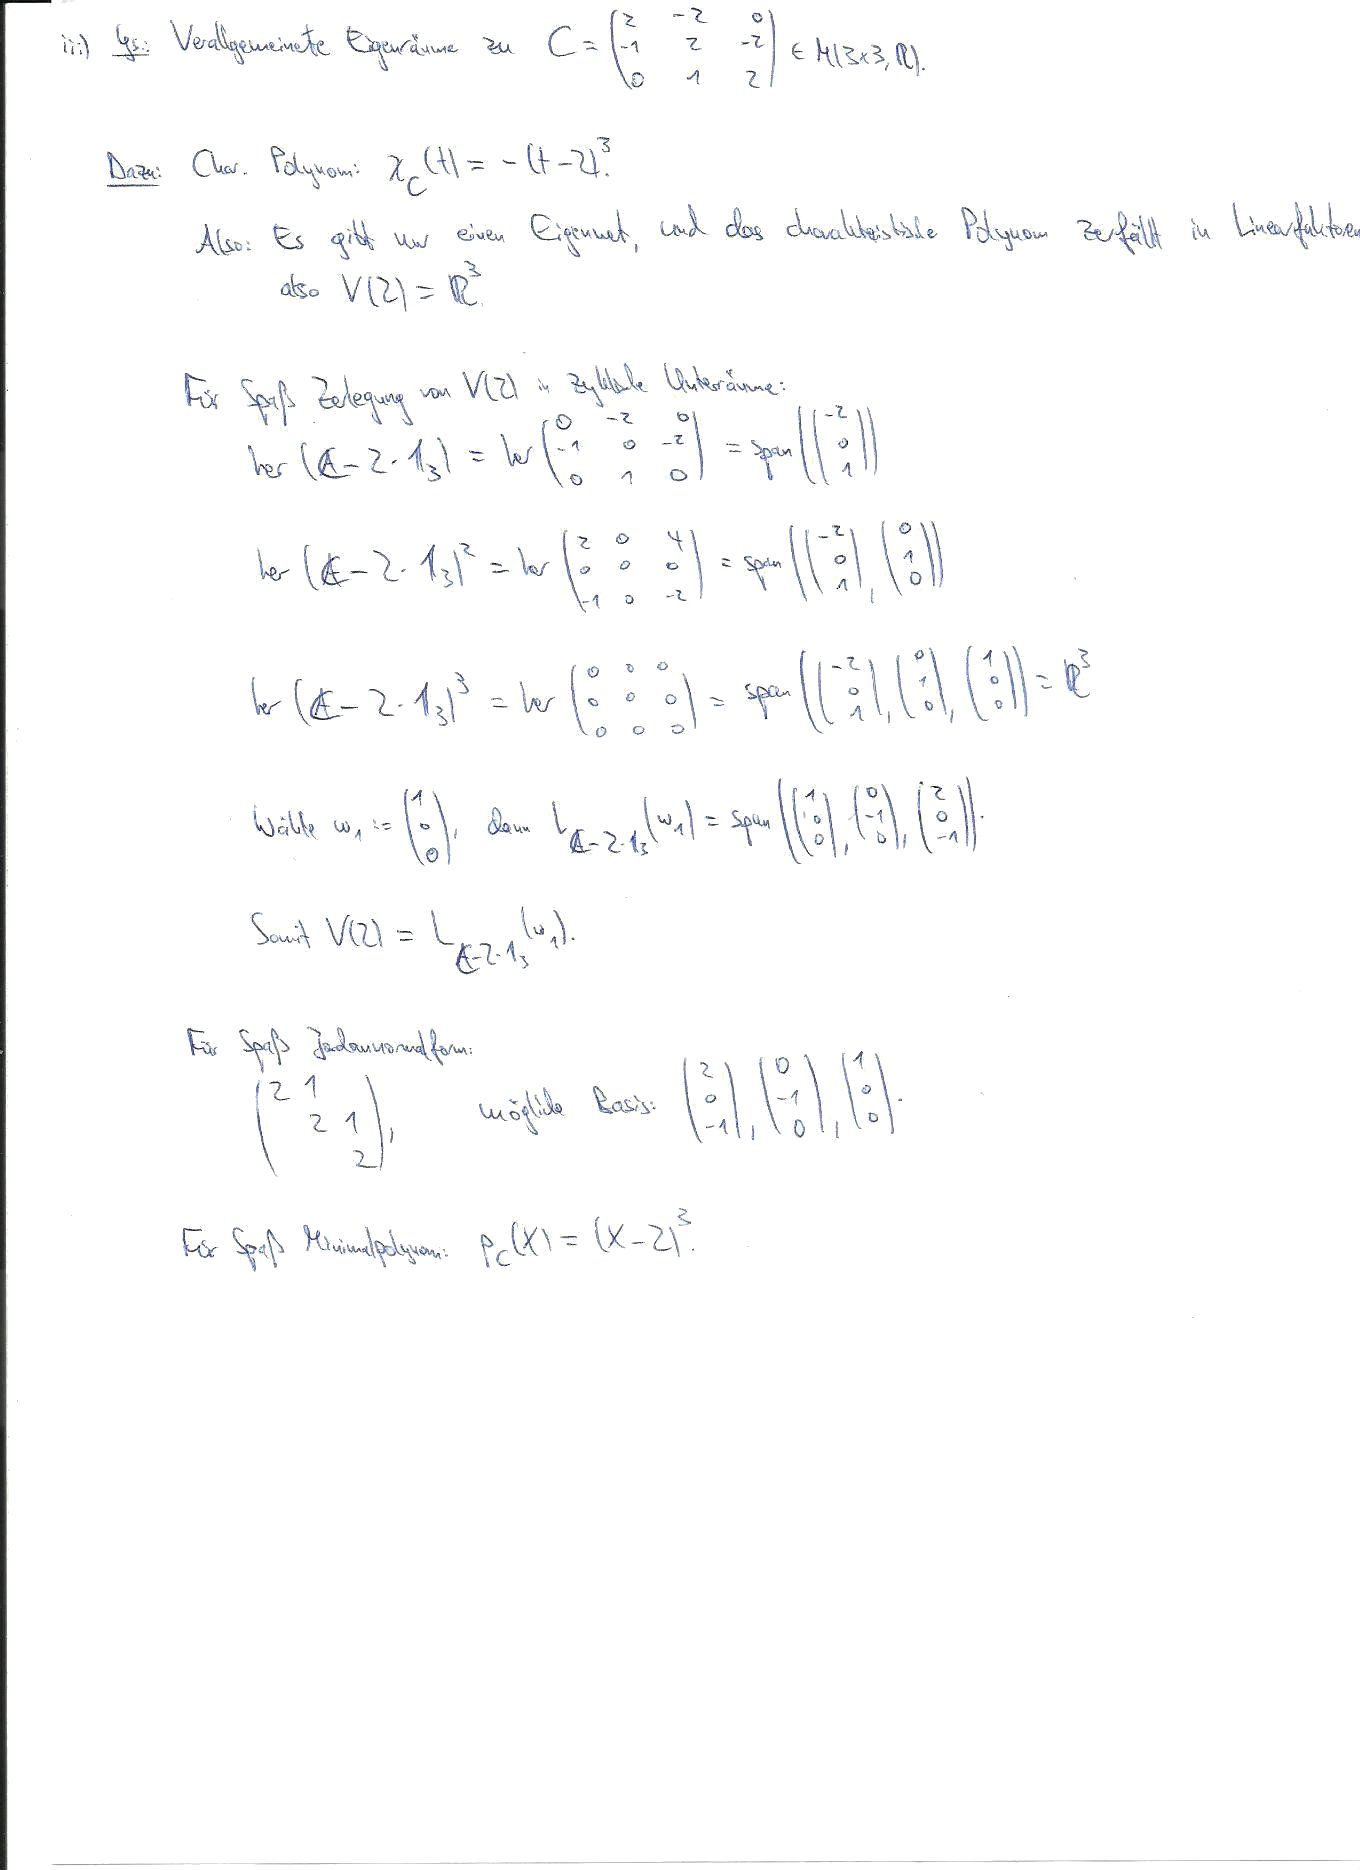 iii) Ges.: Verallgemeinerte Eigenräume zu C = (2 -2 0; -1 2 -2; 0 1 2) ∈ M(3×3, ℝ).
Dazu: Char. Polynom: χ_C(t) = -(t-2)³.
Also: Es gibt nur einen Eigenwert, und das charakteristische Polynom zerfällt in Linearfaktoren
also V(2) = ℝ³.
Für Spaß Zerlegung von V(2) in zyklische Unterräume:
ker (C - 2·1₃) = ker (0 -2 0; -1 0 -2; 0 1 0) = span((-2; 0; 1))
ker (C - 2·1₃)² = ker (2 0 4; 0 0 0; -1 0 -2) = span((-2; 0; 1), (0; 1; 0))
ker (C - 2·1₃)³ = ker (0 0 0; 0 0 0; 0 0 0) = span((-2; 0; 1), (0; 1; 0), (1; 0; 0)) = ℝ³
Wähle w₁ := (1; 0; 0), dann L_{C-2·1₃}(w₁) = span((1; 0; 0), (0; -1; 0), (2; 0; -1)).
Somit V(2) = L_{C-2·1₃}(w₁).
Für Spaß Jordannormalform:
(2 1; 2 1; 2), mögliche Basis: (2; 0; -1), (0; -1; 0), (1; 0; 0).
Für Spaß Minimalpolynom: p_C(X) = (X-2)³.